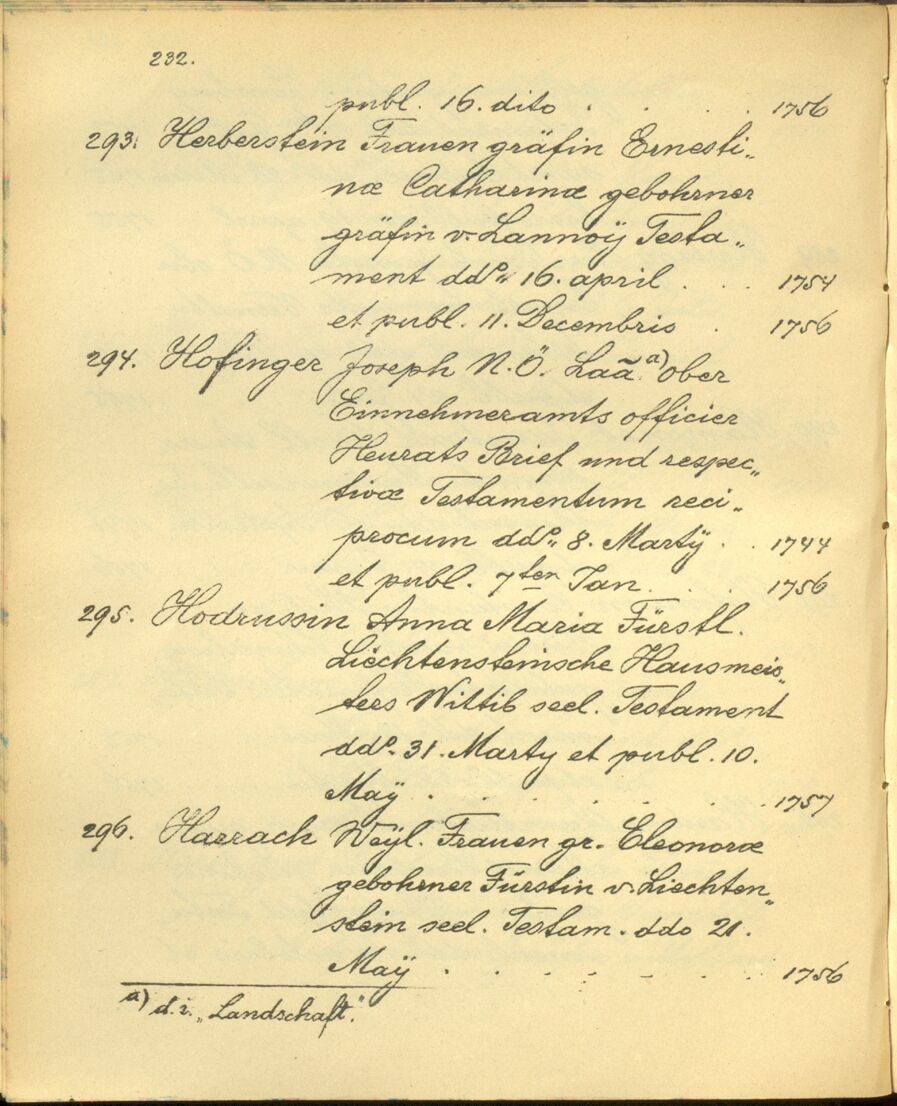 232.
publ. 16. dito . . . . 1756
293. Herberstein Frauen gräfin Ernesti„
næ Catharinæ gebohrner
gräfin v. Lannoÿ Testa„
ment ddº„ 16. april . . . 1754
et publ. 11. Decembris . 1756
294. Hofinger Joseph N.Ö. Laã a) ober
Einnehmeramts officier
Heurats Brief und respec„
tivæ Testamentum reci„
procum ddº„ 8. Martÿ . . 1744
et publ. 7ten Jan. . . . 1756
295. Hodrussin Anna Maria Fürstl.
Liechtensteinische Hausmeis„
ters Wittib seel. Testament
ddº. 31. Marty et publ. 10.
Maÿ . . . . . . . 1757
296. Harrach Weÿl. Frauen gr. Eleonoræ
gebohrner Fürstin v. Liechten„
stein seel. Testam. ddo 21.
Maÿ . . . . . . . 1756
a) d. i. „Landschaft."